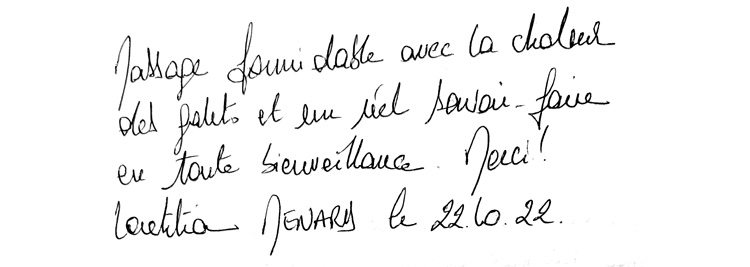 Massage formidable avec la chaleur
des galets et un réel savoir-faire
en toute bienveillance. Merci!
Laetitia MENARD le 22.10.22.